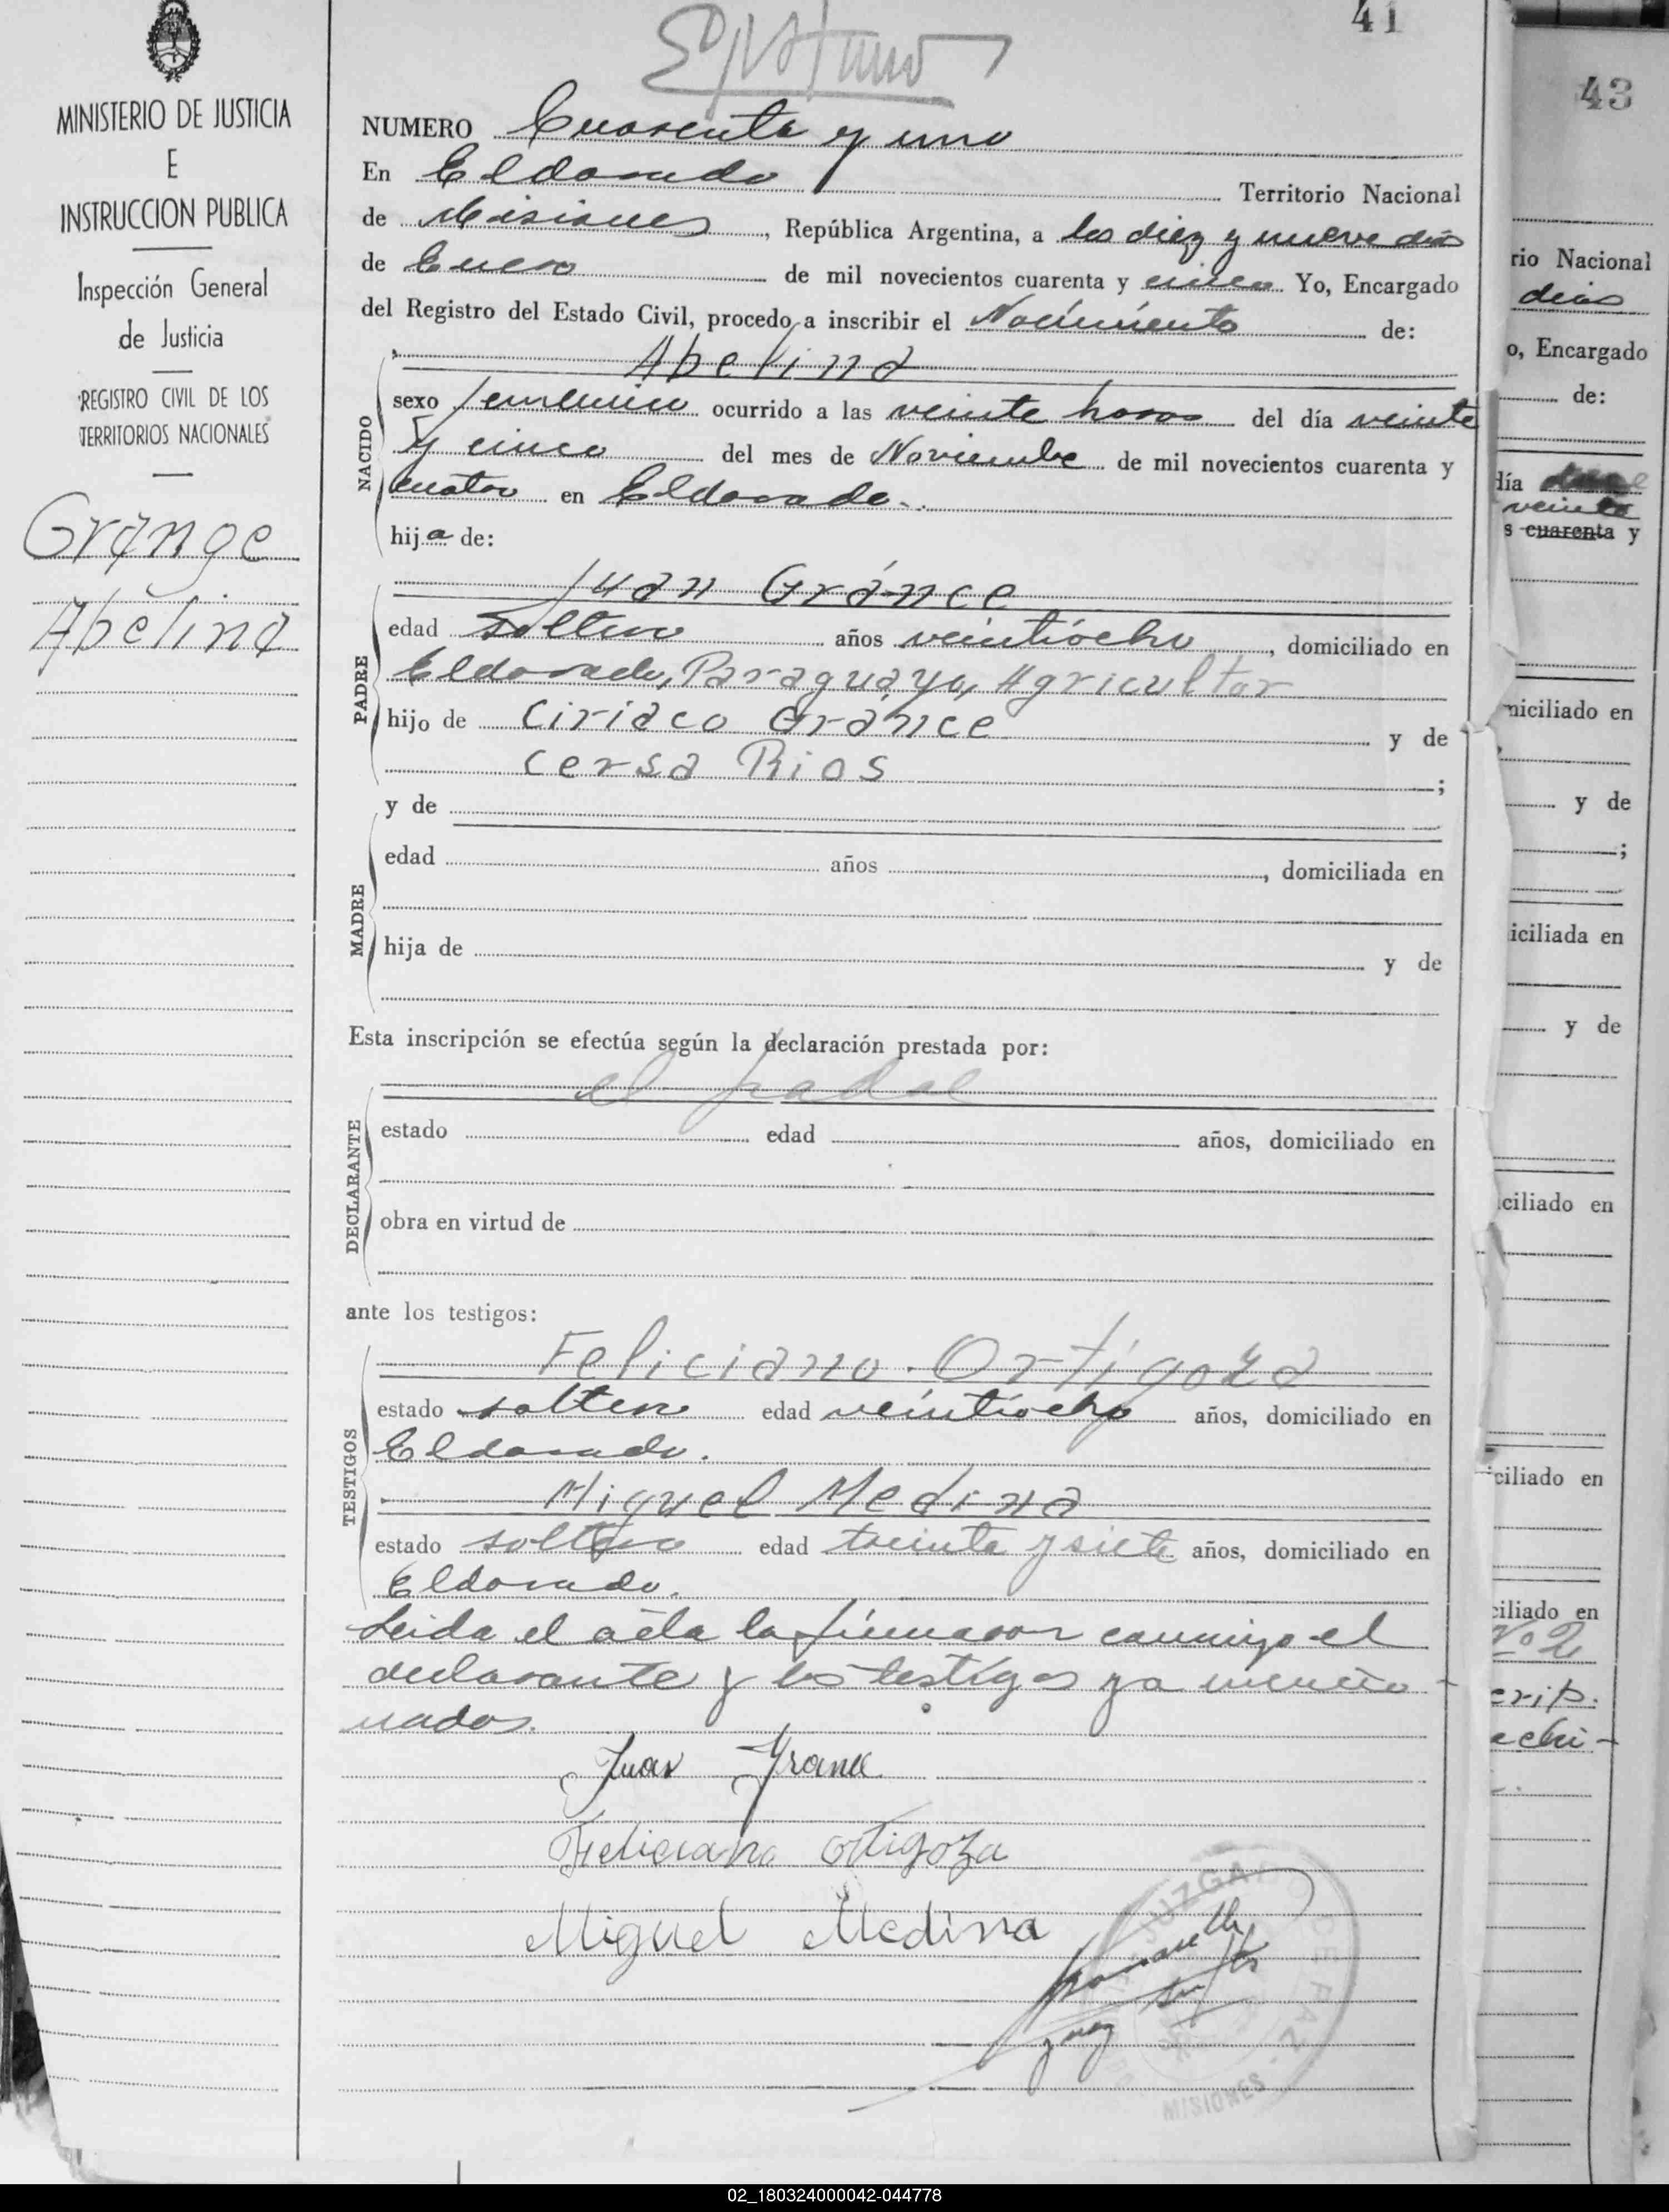 41
MINISTERIO DE JUSTICIA
E
INSTRUCCION PUBLICA
Inspección General
de Justicia
REGISTRO CIVIL DE LOS
TERRITORIOS NACIONALES
Grange
Abelina
NUMERO Cuarenta y uno
En Eldorado Territorio Nacional
de Misiones, República Argentina, a los diez y nueve dias
de Enero de mil novecientos cuarenta y cinco Yo, Encargado
del Registro del Estado Civil, procedo a inscribir el Nacimiento de:
Abelina
NACIDO
sexo femenino ocurrido a las veinte horas del día veinte
y cinco del mes de Noviembre de mil novecientos cuarenta y
cuatro en Eldorado.
hija de:
Juan Gránce
PADRE
edad soltero años veintiócho, domiciliado en
Eldorado, Paraguayo, Agricultor
hijo de Ciriaco Gránce y de
Cersa Rios ;
y de
MADRE
edad años , domiciliada en
hija de y de
Esta inscripción se efectúa según la declaración prestada por:
el padre
DECLARANTE
estado edad años, domiciliado en
obra en virtud de
ante los testigos:
Feliciano Ortigoza
TESTIGOS
estado soltero edad veintiocho años, domiciliado en
Eldorado.
Miguel Medina
estado soltero edad treinta y siete años, domiciliado en
Eldorado.
Leida el acta la firmaron conmigo el
declarante y los testigos ya mencio-
nados.
Juan Grance
Feliciano Ortigoza
Miguel Medina
Juez
JUZGADO DE PAZ
MISIONES
43
rio Nacional
dias
o, Encargado
de:
día
veinte
s cuarenta y
niciliado en
y de
;
iciliada en
y de
ciliado en
ciliado en
ciliado en
Nº 2
crip.
echi-
02_180324000042-044778